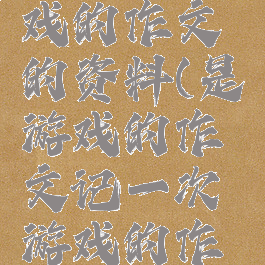 戏的作文
的资料(是
游戏的作
文记一次
游戏的作